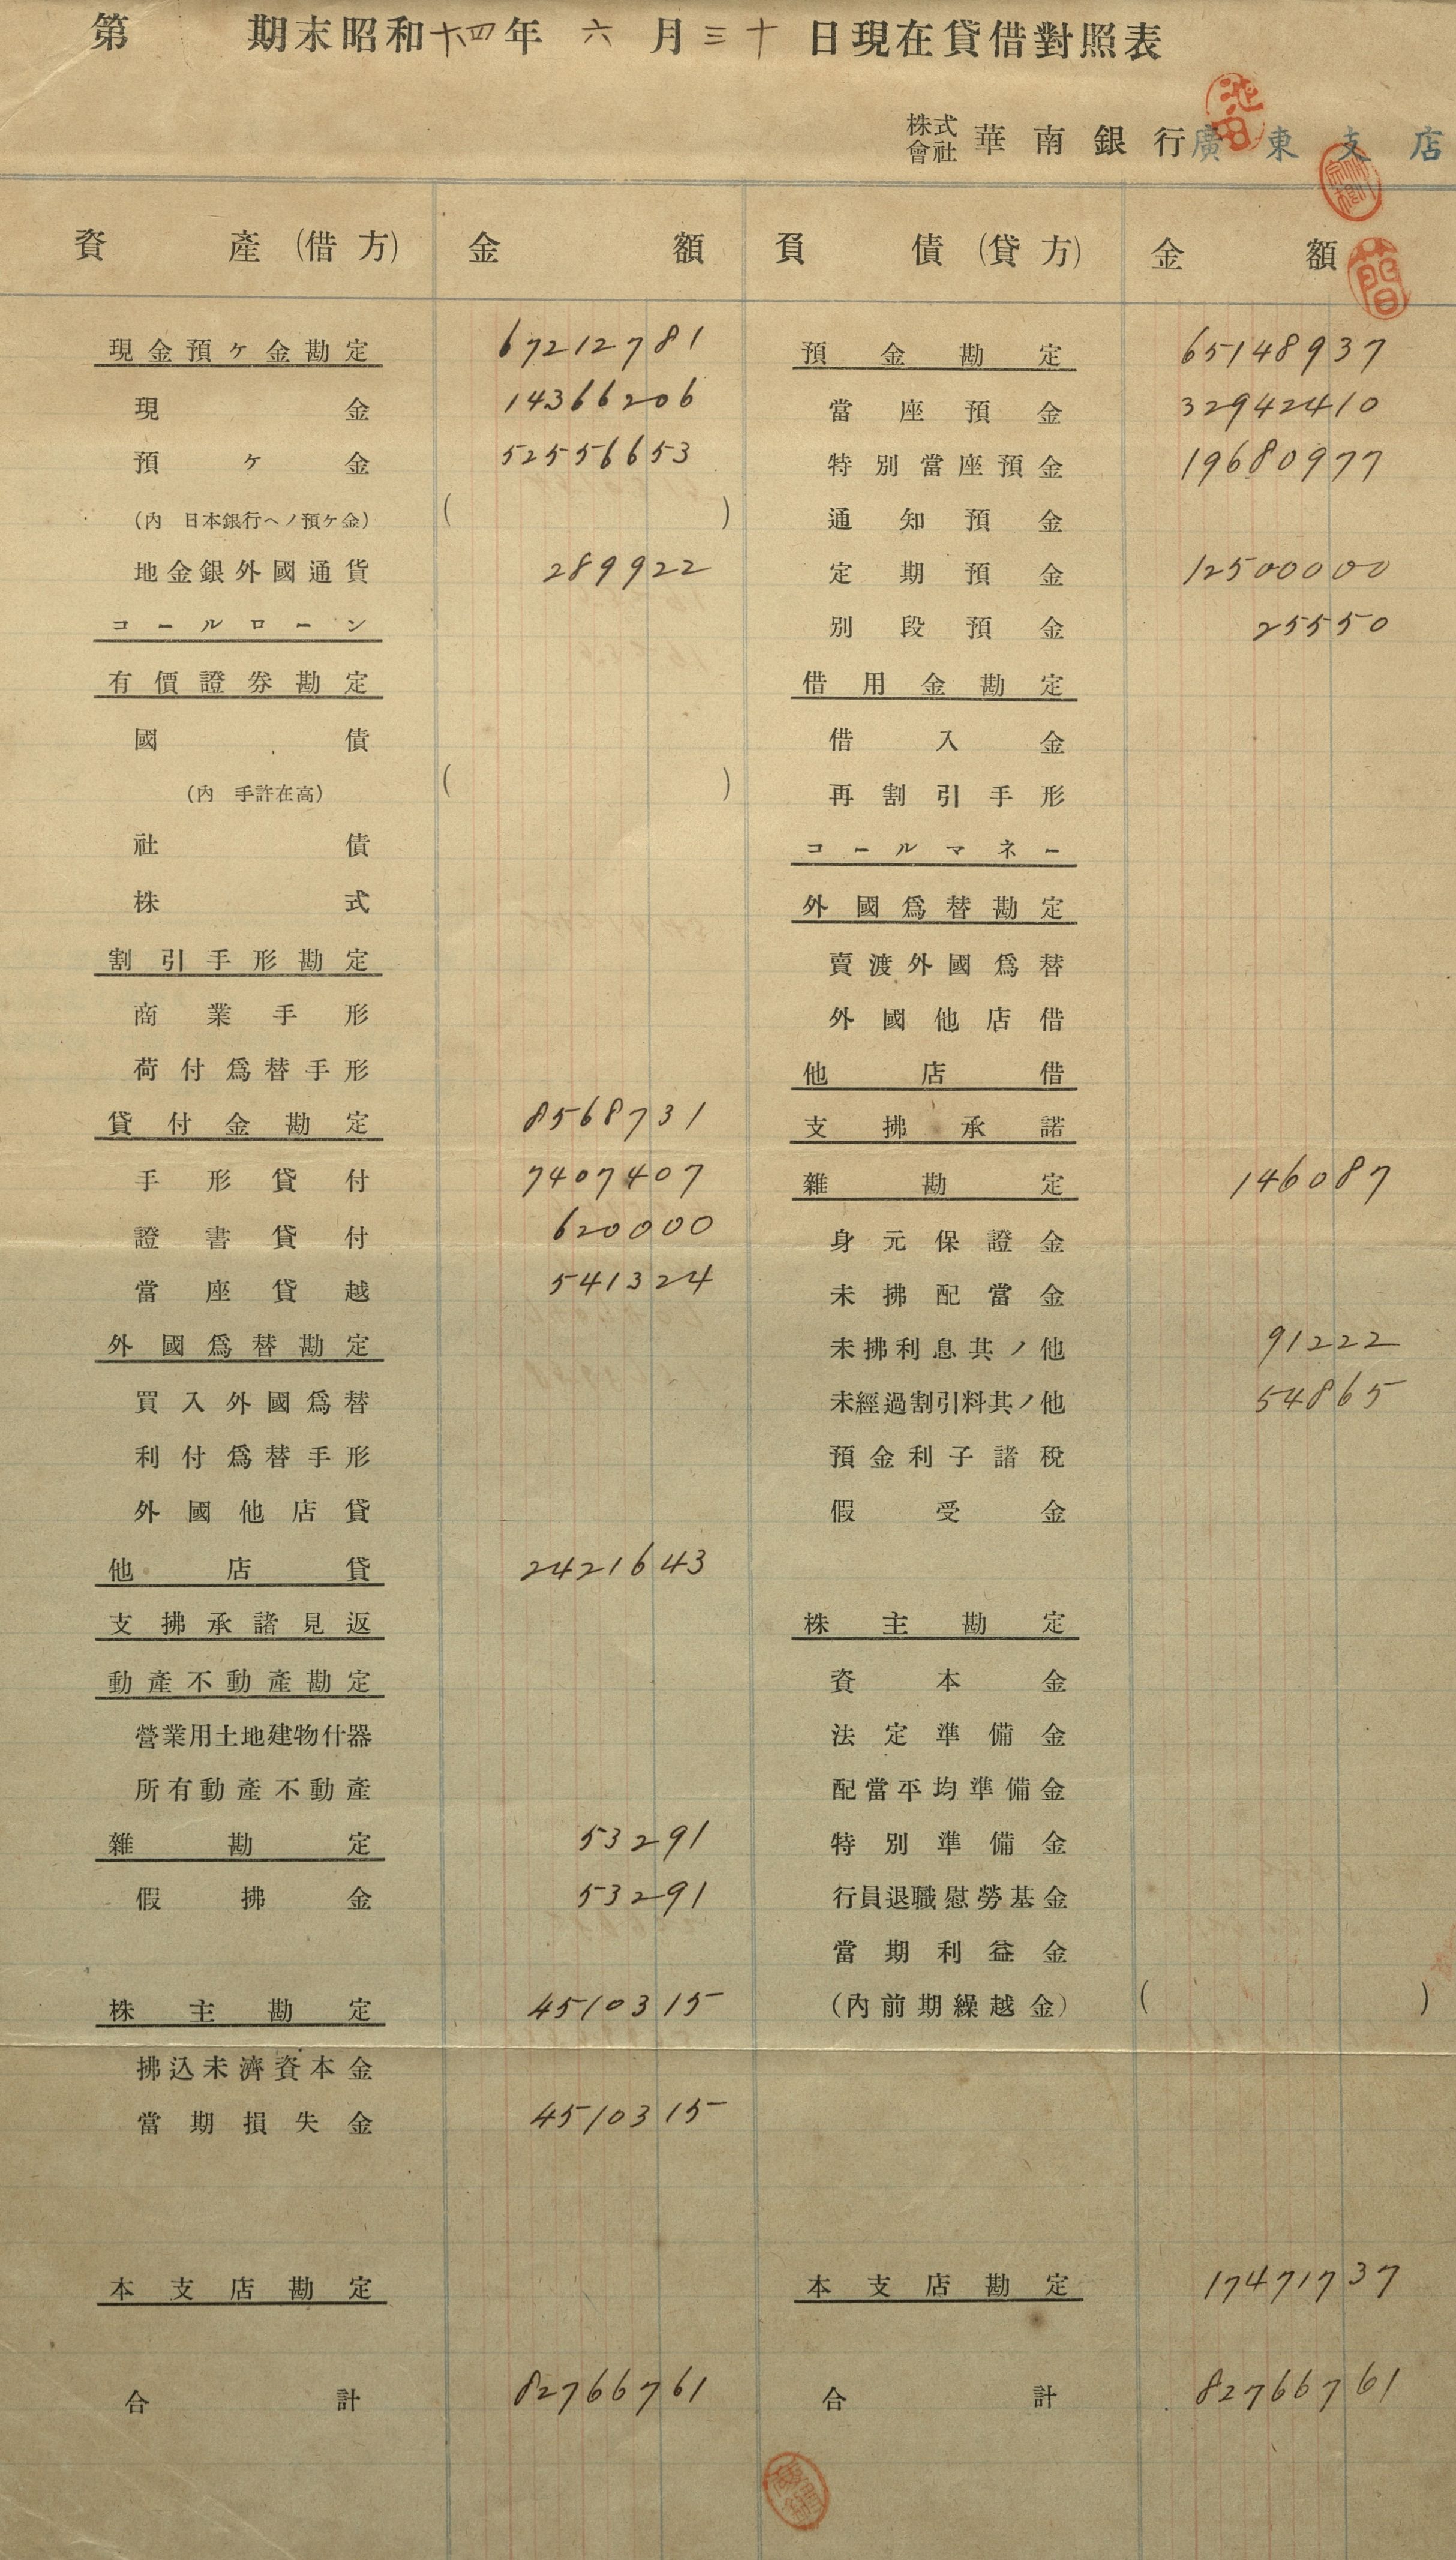 第 期末昭和十四年 六 月 三十 日現在貸借對照表
株式會社 華南銀行廣東支店
資產(借方) 金額 負債(貸方) 金額
現金預ケ金勘定 67212781 預金勘定 65148937
現金 14366206 當座預金 32942410
預ケ金 52556653 特別當座預金 19680977
(內 日本銀行ヘノ預ケ金) ( ) 通知預金
地金銀外國通貨 289922 定期預金 12500000
コールローン 別段預金 25550
有價證券勘定 借用金勘定
國債 借入金
(內 手許在高) ( ) 再割引手形
社債 コールマネー
株式 外國爲替勘定
割引手形勘定 賣渡外國爲替
商業手形 外國他店借
荷付爲替手形 他店借
貸付金勘定 8568731 支拂承諾
手形貸付 7407407 雜勘定 146087
證書貸付 620000 身元保證金
當座貸越 541324 未拂配當金
外國爲替勘定 未拂利息其ノ他 91222
買入外國爲替 未經過割引料其ノ他 54865
利付爲替手形 預金利子諸稅
外國他店貸 假受金
他店貸 2421643
支拂承諸見返 株主勘定
動產不動產勘定 資本金
營業用土地建物什器 法定準備金
所有動產不動產 配當平均準備金
雜勘定 53291 特別準備金
假拂金 53291 行員退職慰勞基金
當期利益金
株主勘定 4510315 (內前期繰越金) ( )
拂込未濟資本金
當期損失金 4510315
本支店勘定 本支店勘定 17471737
合計 82766761 合計 82766761